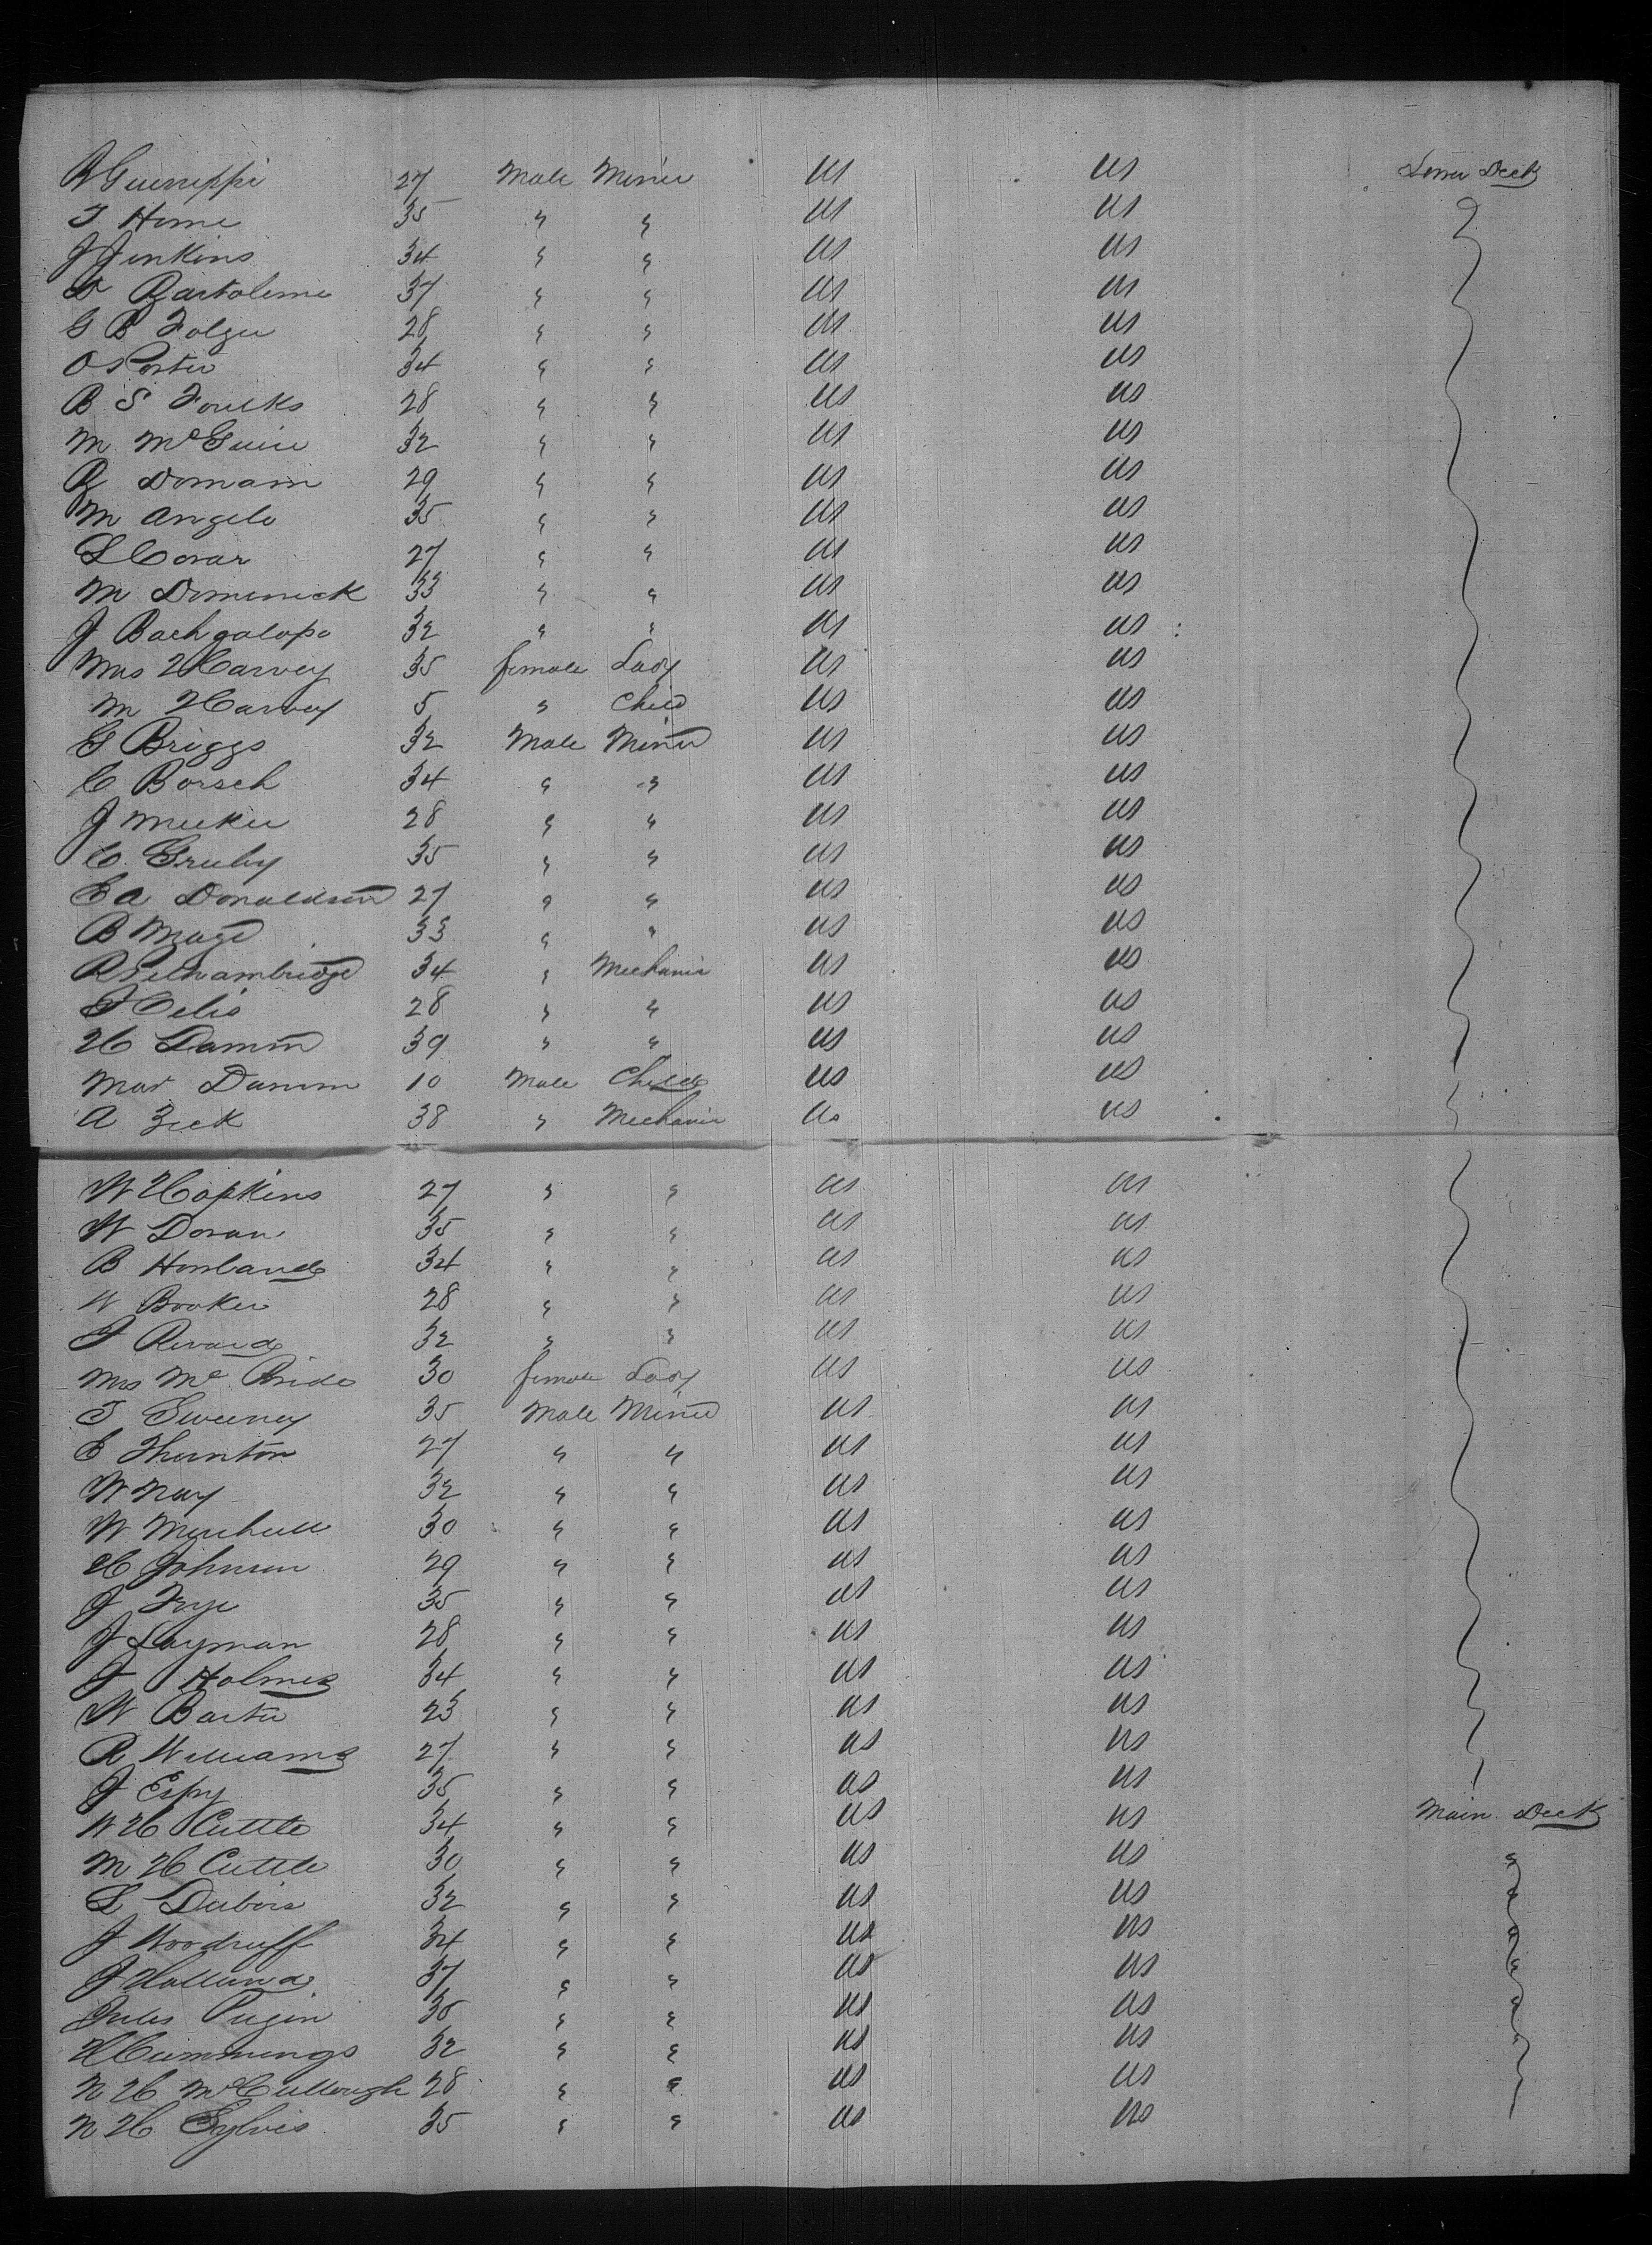 Guiseppi 27 Male Miner US US Lower Deck
T Horne 35 " " US US
J Jenkins 34 " " US US
D Bartolime 37 " " US US
G B Folger 28 " " US US
O Porter 34 " " US US
B S Foulks 28 " " US US
M McGuire 32 " " US US
R Domain 29 " " US US
M Angelo 35 " " US US
L Covar 27 " " US US
M Dominick 33 " " US US
J Bachgalopo 32 " " US US
Mrs Harvey 35 female Lady US US
M Harvey 5 " Child US US
G Briggs 32 Male Miner US US
C Borsch 34 " " US US
J Meeker 28 " " US US
C Gruby 35 " " US US
E A Donaldson 27 " " US US
B Mayo 33 " " US US
R Pethambridge 34 " Mechanic US US
J Celis 28 " " US US
H Damm 39 " " US US
Mas Damm 10 Male Child US US
A Zeck 38 " Mechanic US US
W Hopkins 27 " " US US
W Doran 35 " " US US
B Howland 34 " " US US
W Booker 28 " " US US
J Revard 32 " " US US
Mrs McBride 30 female Lady US US
T Sweeney 35 Male Miner US US
E Thurnton 27 " " US US
W Nay 32 " " US US
W Minhull 30 " " US US
H Johnson 29 " " US US
J Frye 35 " " US US
J Layman 28 " " US US
J Holmes 34 " " US US
W Barter 23 " " US US
R Williams 27 " " US US
J Espy 35 " " US US
W H Cuttle 34 " " US US Main Deck
M H Cuttle 30 " " US US "
L Dubois 32 " " US US "
J Woodruff 34 " " US US "
J Holland 37 " " US US "
Jules Pugin 35 " " US US "
H Cummings 32 " " US US
N H McCullough 28 " " US US
N H Sylvis 35 " " US US